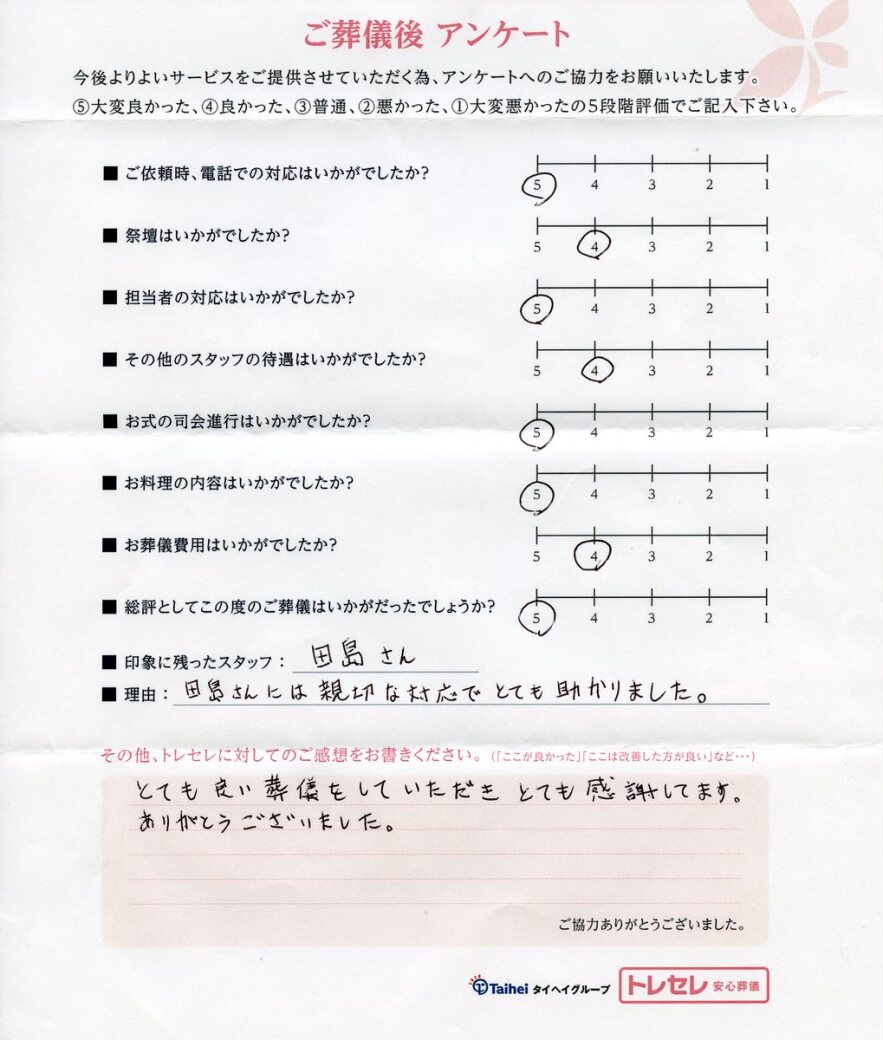 ご葬儀後 アンケート
今後よりよいサービスをご提供させていただく為、アンケートへのご協力をお願いいたします。
⑤大変良かった、④良かった、③普通、②悪かった、①大変悪かったの5段階評価でご記入下さい。
■ ご依頼時、電話での対応はいかがでしたか? 5 4 3 2 1
■ 祭壇はいかがでしたか? 5 4 3 2 1
■ 担当者の対応はいかがでしたか? 5 4 3 2 1
■ その他のスタッフの待遇はいかがでしたか? 5 4 3 2 1
■ お式の司会進行はいかがでしたか? 5 4 3 2 1
■ お料理の内容はいかがでしたか? 5 4 3 2 1
■ お葬儀費用はいかがでしたか? 5 4 3 2 1
■ 総評としてこの度のご葬儀はいかがだったでしょうか? 5 4 3 2 1
■ 印象に残ったスタッフ : 田島さん
■ 理由 : 田島さんには親切な対応でとても助かりました。
その他、トレセレに対してのご感想をお書きください。(「ここが良かった」「ここは改善した方が良い」など…)
とても良い葬儀をしていただきとても感謝してます。
ありがとうございました。
ご協力ありがとうございました。
Taihei タイヘイグループ トレセレ 安心葬儀